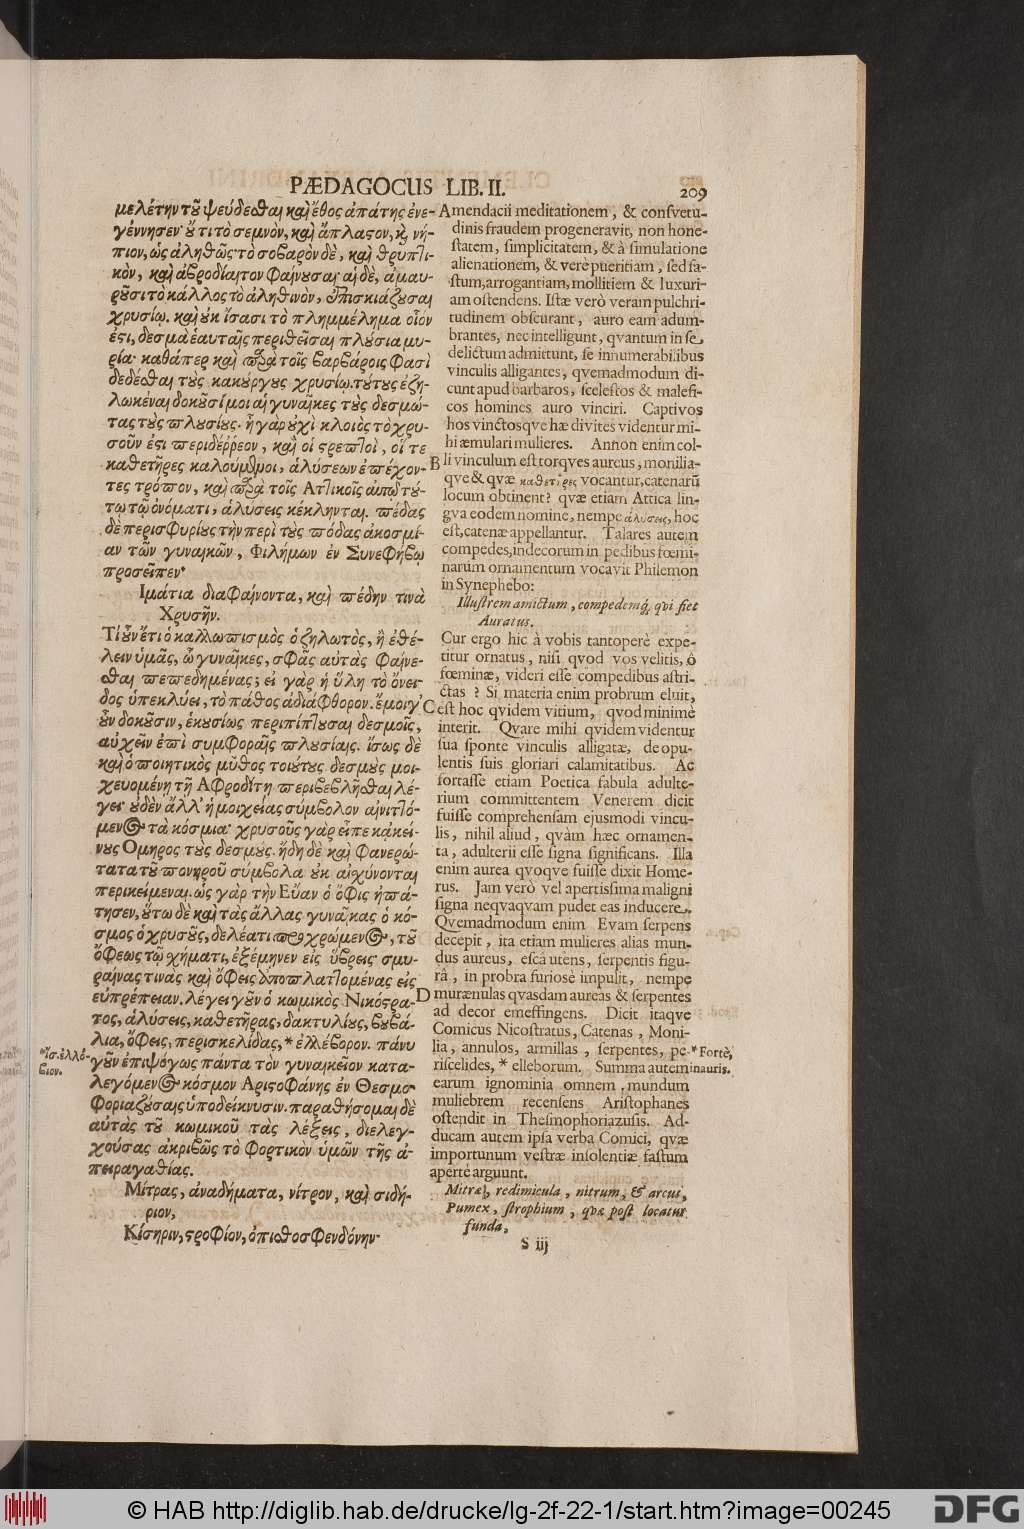 PÆDAGOCUS LIB. II.
209
μελέτην τοῦ ψεύδεσθαι καὶ ἔθος ἀπάτης ἐνε-
γέννησεν· οὔ τι τὸ σεμνὸν, καὶ ἄπλαστον, καὶ νή-
πιον, ὡς ἀληθῶς· τὸ σοβαρὸν δὲ, καὶ θρυπτι-
κὸν, καὶ ἁβροδίαιτον φαίνουσαι· αἱ δὲ, ἀμαυ-
ροῦσι τὸ κάλλος τὸ ἀληθινὸν, ἐπισκιάζουσαι
χρυσίῳ. καὶ οὐκ ἴσασι τὸ πλημμέλημα οἷον
ἐστι, δεσμὰ ἑαυταῖς περιθεῖσαι πλούσια μυ-
ρία· καθάπερ καὶ παρὰ τοῖς βαρβάροις φασὶ
δεδέσθαι τοὺς κακούργους χρυσίῳ. τούτους ἐζη-
λωκέναι δοκοῦσί μοι αἱ γυναῖκες τοὺς δεσμώ-
τας τοὺς πλουσίους. ἢ γὰρ οὐχὶ κλοιὸς τὸ χρυ-
σοῦν ἐστι περιδέῤῥεον, καὶ οἱ στρεπτοὶ, οἵ τε
καθετῆρες καλούμενοι, ἁλύσεων ἐπέχον-
τες τρόπον, καὶ παρὰ τοῖς Ἀττικοῖς αὐτῷ τού-
τῳ τῷ ὀνόματι, ἁλύσεις κέκληνται. πέδας
δὲ περισφυρίους τὴν περὶ τοὺς πόδας ἀκοσμί-
αν τῶν γυναικῶν, Φιλήμων ἐν Συνεφήβῳ
προσεῖπεν·
Ἱμάτια διαφαίνοντα, καὶ πέδην τινὰ
Χρυσῆν.
Τί οὖν ἔτι ὁ καλλωπισμὸς ὁ ζηλωτὸς, ἢ ἐθέ-
λειν ὑμᾶς, ὦ γυναῖκες, σφᾶς αὐτὰς φαίνε-
σθαι πεπεδημένας; εἰ γὰρ ἡ ὕλη τὸ ὄνει-
δος ὑπεκλύει, τὸ πάθος ἀδιάφθορον. ἔμοιγ'
οὖν δοκοῦσιν, ἑκουσίως περιπίπτουσαι δεσμοῖς,
αὐχεῖν ἐπὶ συμφοραῖς πλουσίαις. ἴσως δὲ
καὶ ὁ ποιητικὸς μῦθος τοιούτους δεσμοὺς μοι-
χευομένῃ τῇ Ἀφροδίτῃ περιβεβλῆσθαι λέ-
γει· οὐδὲν ἄλλ' ἢ μοιχείας σύμβολον αἰνιττό-
μενος τὰ κόσμια· χρυσοῦς γὰρ εἶπε κἀκεί-
νους Ὅμηρος τοὺς δεσμούς. ἤδη δὲ καὶ φανερώ-
τατα τοῦ πονηροῦ σύμβολα οὐκ αἰσχύνονται
περικείμεναι. ὡς γὰρ τὴν Εὔαν ὁ ὄφις ἠπά-
τησεν, οὕτω δὲ καὶ τὰς ἄλλας γυναῖκας ὁ κό-
σμος ὁ χρυσοῦς, δελέατι προσχρώμενος, τοῦ
ὄφεως τῷ σχήματι, ἐξέμηνεν εἰς ὕβρεις· σμυ-
ραίνας τινὰς καὶ ὄφεις ἀποπλαττομένας εἰς
εὐπρέπειαν. λέγει γοῦν ὁ κωμικὸς Νικόστρα-
τος, ἁλύσεις, καθετῆρας, δακτυλίους, βουβά-
λια, ὄφεις, περισκελίδας, * ἑλλέβορον. πάνυ
γοῦν ἐπιψόγως πάντα τὸν γυναικεῖον κατα-
λεγόμενος κόσμον Ἀριστοφάνης ἐν Θεσμο-
φοριαζούσαις ὑποδείκνυσιν. παραθήσομαι δὲ
αὐτὰς τοῦ κωμικοῦ τὰς λέξεις, διελεγ-
χούσας ἀκριβῶς τὸ φορτικὸν ὑμῶν τῆς ἀ-
πειραγαθίας.
Μίτρας, ἀναδήματα, νίτρον, καὶ σιδή-
ριον,
Κίσηριν, στροφίον, ὀπισθοσφενδόνην·
* ἴσ. ἐλλό-
βιον.
A mendacii meditationem, & consvetu-
dinis fraudem progeneravit, non hone-
statem, simplicitatem, & à simulatione
alienationem, & verè pueritiam, sed fa-
stum, arrogantiam, mollitiem & luxuri-
am ostendens. Istæ verò veram pulchri-
tudinem obscurant, auro eam adum-
brantes, nec intelligunt, qvantum in se
delictum admittunt, se innumerabilibus
vinculis alligantes, qvemadmodum di-
cunt apud barbaros, scelestos & malefi-
cos homines auro vinciri. Captivos
hos vinctosqve hæ divites videntur mi-
hi æmulari mulieres. Annon enim col-
B li vinculum est torqves aureus, monilia-
qve & qvæ καθετῆρες vocantur, catenarũ
locum obtinent? qvæ etiam Attica lin-
gva eodem nomine, nempe ἁλύσεις, hoc
est, catenæ appellantur. Talares autem
compedes, indecorum in pedibus fœmi-
narum ornamentum vocavit Philemon
in Synephebo:
Illustrem amictum, compedemq́, qvi fiet
Auratus.
Cur ergo hic à vobis tantoperè expe-
titur ornatus, nisi qvod vos velitis, ô
fœminæ, videri esse compedibus astri-
ctas? Si materia enim probrum eluit,
C est hoc qvidem vitium, qvod minimè
interit. Qvare mihi qvidem videntur
sua sponte vinculis alligatæ, de opu-
lentis suis gloriari calamitatibus. Ac
fortasse etiam Poetica fabula adulte-
rium committentem Venerem dicit
fuisse comprehensam ejusmodi vincu-
lis, nihil aliud, qvàm hæc ornamen-
ta, adulterii esse signa significans. Illa
enim aurea qvoqve fuisse dixit Home-
rus. Jam verò vel apertissima maligni
signa neqvaqvam pudet eas inducere.
Qvemadmodum enim Evam serpens
decepit, ita etiam mulieres alias mun-
dus aureus, escâ utens, serpentis figu-
râ, in probra furiosè impulit, nempe
D murænulas qvasdam aureas & serpentes
ad decor emeffingens. Dicit itaqve
Comicus Nicostratus, Catenas, Moni-
lia, annulos, armillas, serpentes, pe-
riscelides, * elleborum. Summa autem
earum ignominia omnem mundum
muliebrem recensens Aristophanes
ostendit in Thesmophoriazusis. Ad-
ducam autem ipsa verba Comici, qvæ
importunum vestræ insolentiæ fastum
apertè arguunt.
Mitræ, redimicula, nitrum, & arcus,
Pumex, strophium, qvæ post locatur
funda,
* Fortè,
inauris.
S iij
© HAB http://diglib.hab.de/drucke/lg-2f-22-1/start.htm?image=00245
DFG